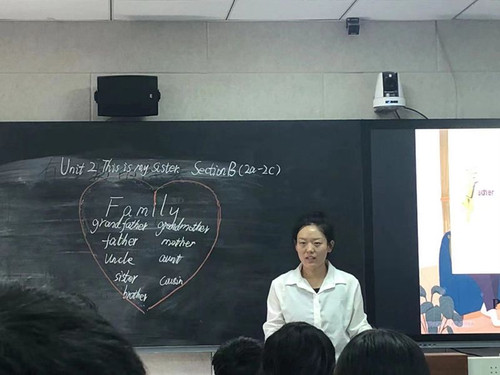 Unit 2 This is my sister. Section B (2a-2c)
Family
grandfather grandmother
father mother
uncle aunt
sister cousin
brother